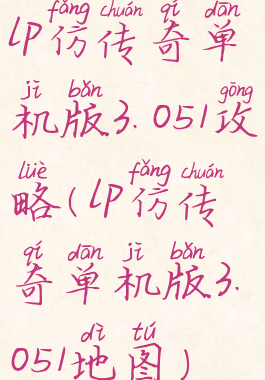 fǎng chuán qí dān
lp仿传奇单
jī bǎn gōng
机版3.051攻
lüè fǎng chuán
略(lp仿传
qí dān jī bǎn
奇单机版3.
dì tú
051地图)